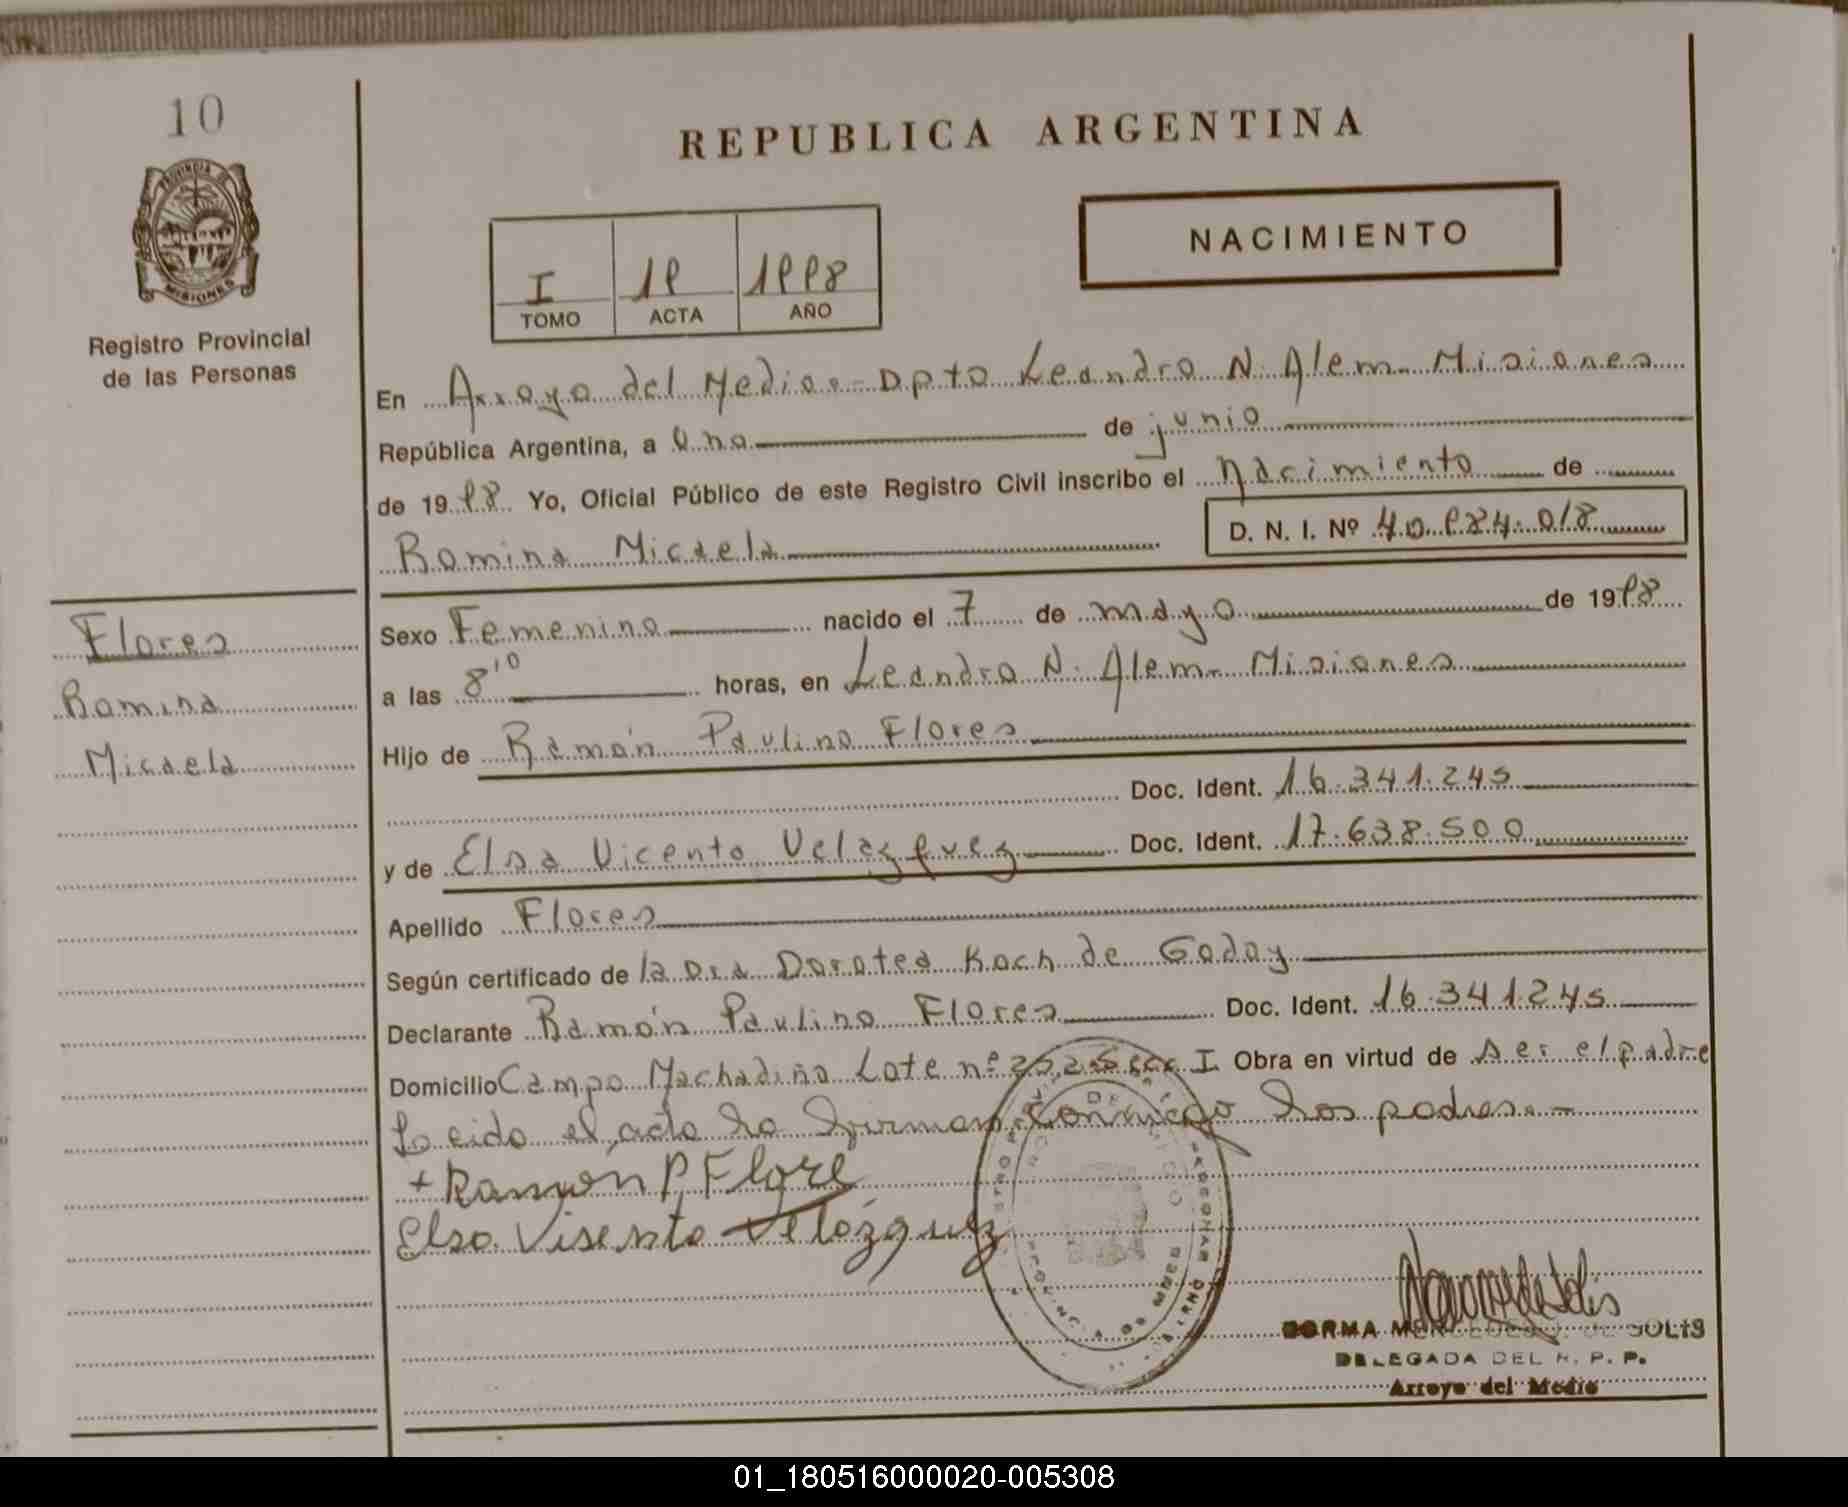 10
REPUBLICA ARGENTINA
PROVINCIA DE
MISIONES
Registro Provincial
de las Personas
NACIMIENTO
I 19 1998
TOMO ACTA AÑO
En Arroyo del Medio - Dpto Leandro N. Alem - Misiones
República Argentina, a Uno de junio
de 1998 Yo, Oficial Público de este Registro Civil inscribo el Nacimiento de
Romina Micaela D. N. I. Nº 40.984.018
Sexo Femenino nacido el 7 de mayo de 1998
a las 8'10 horas, en Leandro N. Alem - Misiones
Hijo de Ramón Paulino Flores
Doc. Ident. 16.341.245
y de Elsa Vicenta Velazquez Doc. Ident. 17.638.500
Apellido Flores
Según certificado de la Dra Dorotea Koch de Godoy
Declarante Ramón Paulino Flores Doc. Ident. 16.341.245
Domicilio Campo Machadiño Lote nº 202 Secc I Obra en virtud de ser el padre
Leido el acta la firman conmigo los padres.-
+ Ramón P. Flore
Elsa Visenta Velázquez
Flores
Romina
Micaela
NORMA MERCEDES DE SOLIS
DELEGADA DEL R. P. P.
Arroyo del Medio
01_180516000020-005308